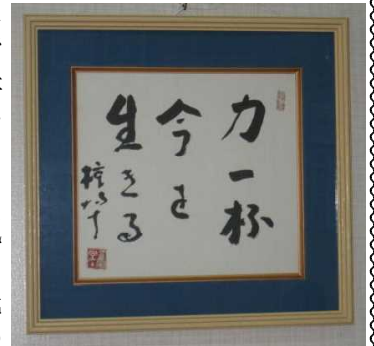 力一杯
今を
生きる